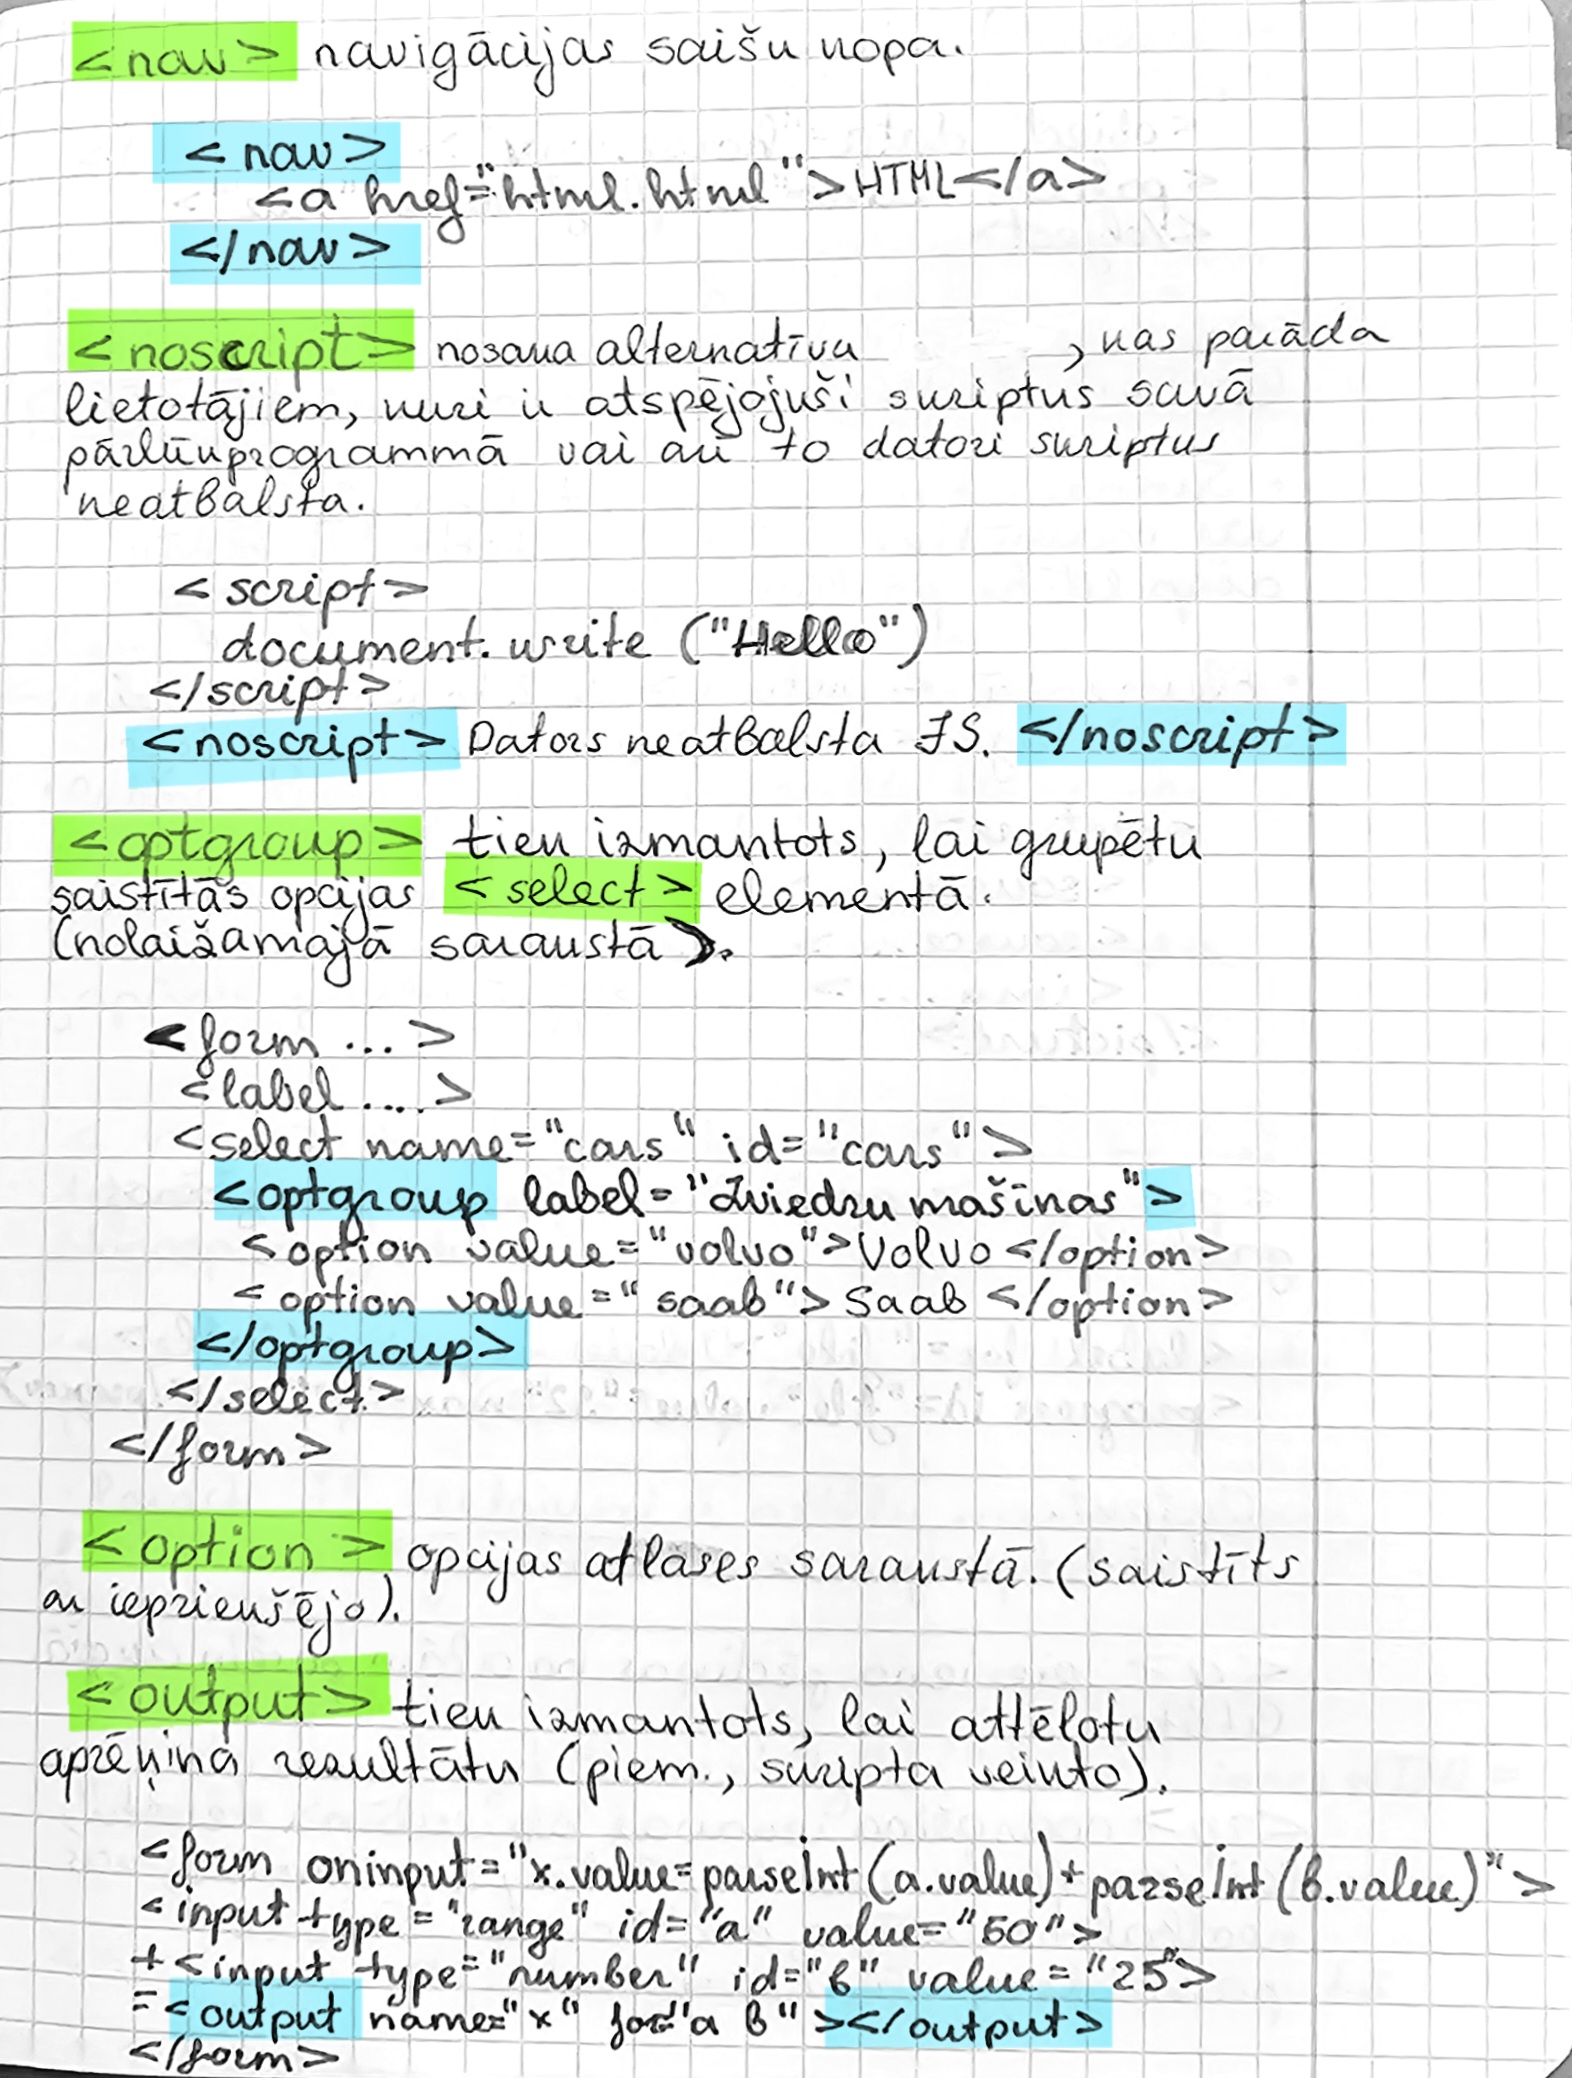 <nav> navigācijas saišu kopa.
<nav>
<a href="html.html">HTML</a>
</nav>
<noscript> nosaka alternatīvu , kas parāda
lietotājiem, kuri ir atspējojuši skriptus savā
pārlūkprogrammā vai arī to datori skriptus
neatbalsta.
<script>
document.write ("Hello")
</script>
<noscript> Dators neatbalsta JS. </noscript>
<optgroup> tiek izmantots, lai grupētu
saistītās opcijas <select> elementā.
(nolaižamajā sarakstā).
<form ...>
<label ....>
<select name="cars" id="cars">
<optgroup label="Zviedru mašīnas">
<option value="volvo">Volvo </option>
<option value="saab"> Saab </option>
</optgroup>
</select>
</form>
<option> opcijas atlases sarakstā. (saistīts
ar iepriekšējo).
<output> tiek izmantots, lai attēlotu
aprēķina rezultātu (piem., skripta veikto).
<form oninput="x.value=parseInt(a.value)+parseInt(b.value)">
<input type="range" id="a" value="50">
+<input type="number" id="b" value="25">
=<output name="x" for="a b"></output>
</form>